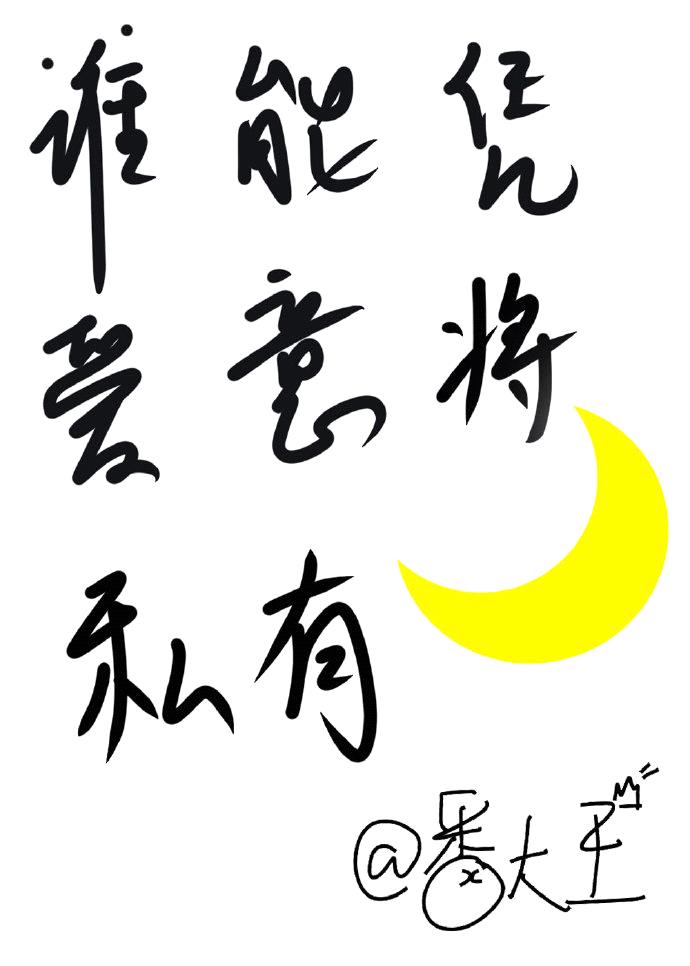 谁能凭
爱意将
私有
@番大王